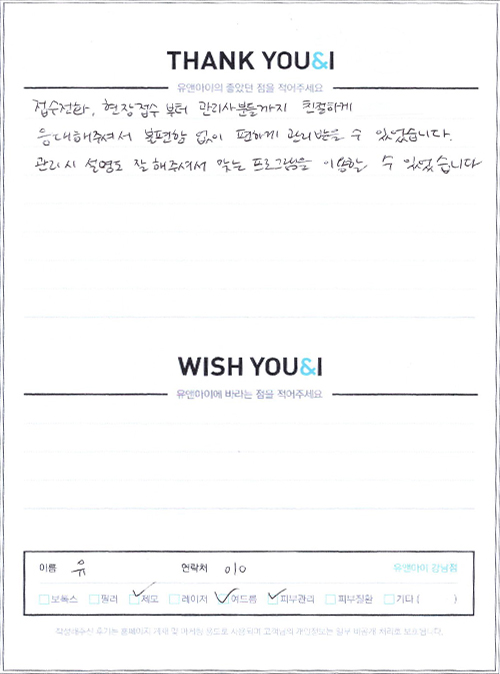 THANK YOU&I
유앤아이의 좋았던 점을 적어주세요
접수전화, 현장접수 부터 관리사분들까지 친절하게
응대해주셔서 불편함 없이 편하게 관리받을 수 있었습니다.
관리시 설명도 잘해주셔서 맞는 프로그램을 이용할 수 있었습니다
WISH YOU&I
유앤아이에 바라는 점을 적어주세요
이름 유 연락처 010 유앤아이 강남점
보톡스 필러 제모 레이저 여드름 피부관리 피부질환 기타 ( )
작성해주신 후기는 홈페이지 게재 및 마케팅 용도로 사용되며 고객님의 개인정보는 일부 비공개 처리로 보호됩니다.